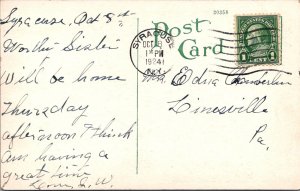 Syracuse, Oct 8th
20358
Post Card
SYRACUSE
OCT 8
1 PM
1924
N.Y.
1 CENT 1
Worthy Sister
Will be home
Thursday
afternoon I think
Am having a
great time
Mrs. Edna Chamberlin
Linesville
Pa.